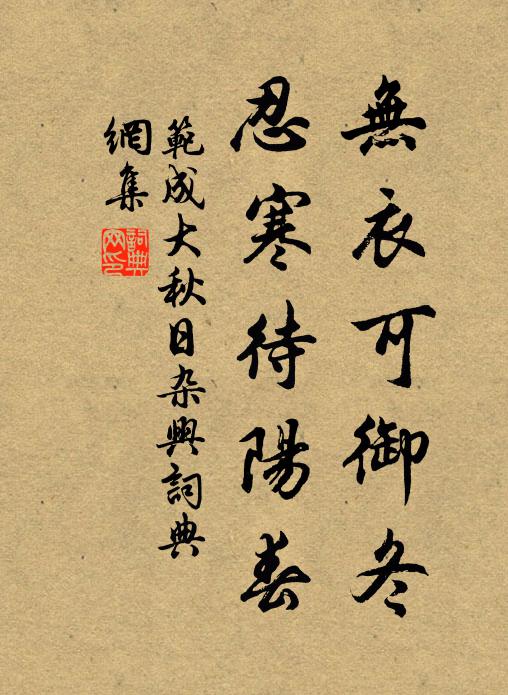 無衣可御冬
忍寒待陽春
範成大秋日杂興詞典
網集
詞典
网印